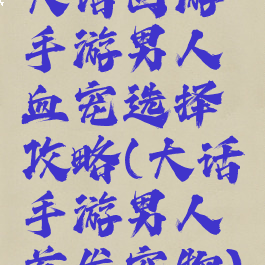 大话西游
手游男人
血宠选择
攻略(大话
手游男人